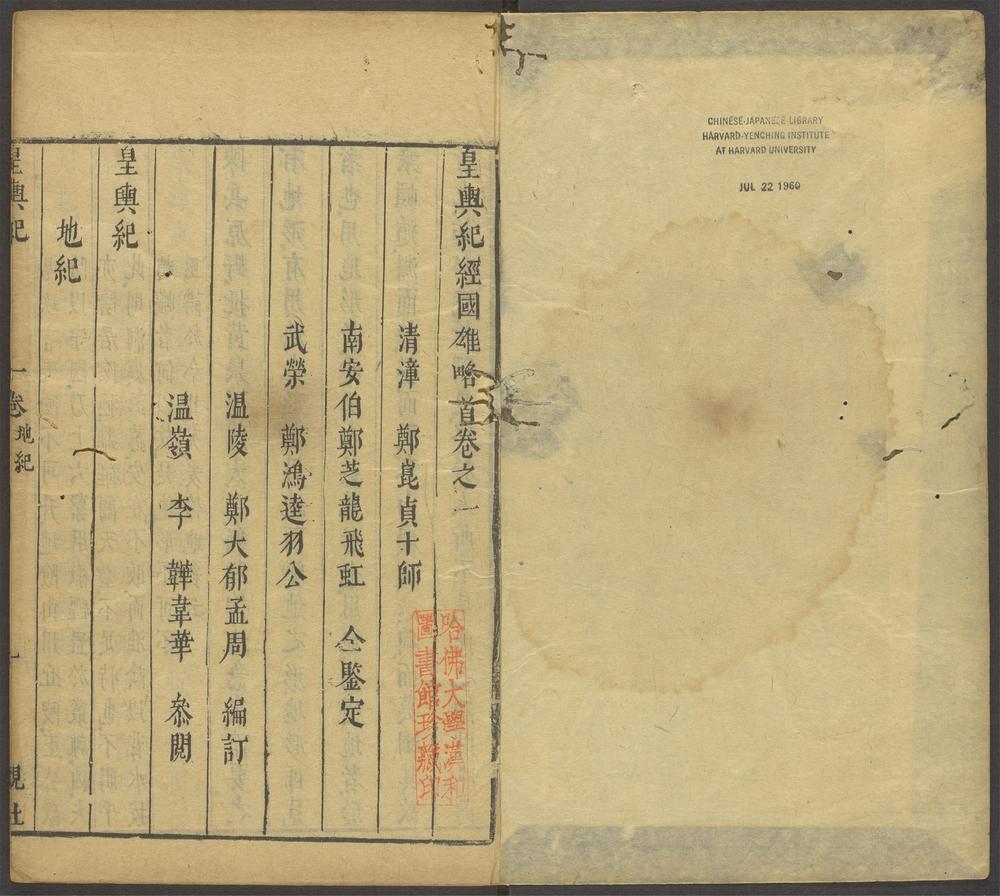 CHINESE-JAPANESE LIBRARY
HARVARD-YENCHING INSTITUTE
AT HARVARD UNIVERSITY
JUL 22 1960
皇輿紀經國雄略首卷之一
清漳 鄭崑貞十師
南安伯鄭芝龍飛虹 仝鑒定
武榮 鄭鴻逵羽公
温陵 鄭大郁孟周 編訂
温嶺 李 韡韋華 叅閱
皇輿紀
地紀
皇輿紀 一卷 地紀 一 觀社
哈佛大學漢和
圖書館珍藏印